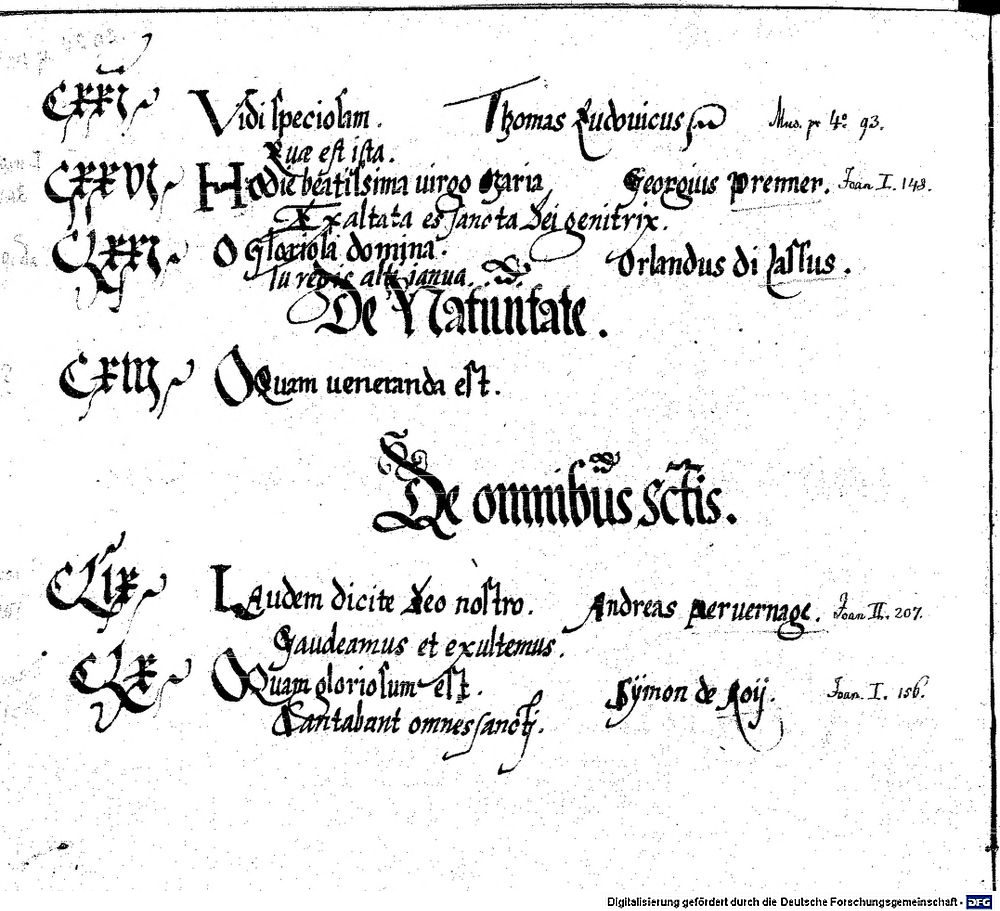 CXXI Vidi speciosam. Thomas Ludovicus Mus. pr. 4º 93.
Quæ est ista.
CXXVI Hodie beatissima uirgo Maria Georgius Prenner. Joan I. 148.
Exaltata es sancta Dei genitrix.
O Gloriosa domina. Orlandus di Lassus.
Tu regis alti janua.
De Natiuitate.
CXIII O Quam ueneranda est.
De omnibus sctis.
CLIX Laudem dicite Deo nostro. Andreas Peruernage. Joan II. 207.
Gaudeamus et exultemus.
CLX O Quam gloriosum est. Sÿmon de Roij. Joan. I. 156.
Cantabant omnes sancti.
Digitalisierung gefördert durch die Deutsche Forschungsgemeinschaft - DFG